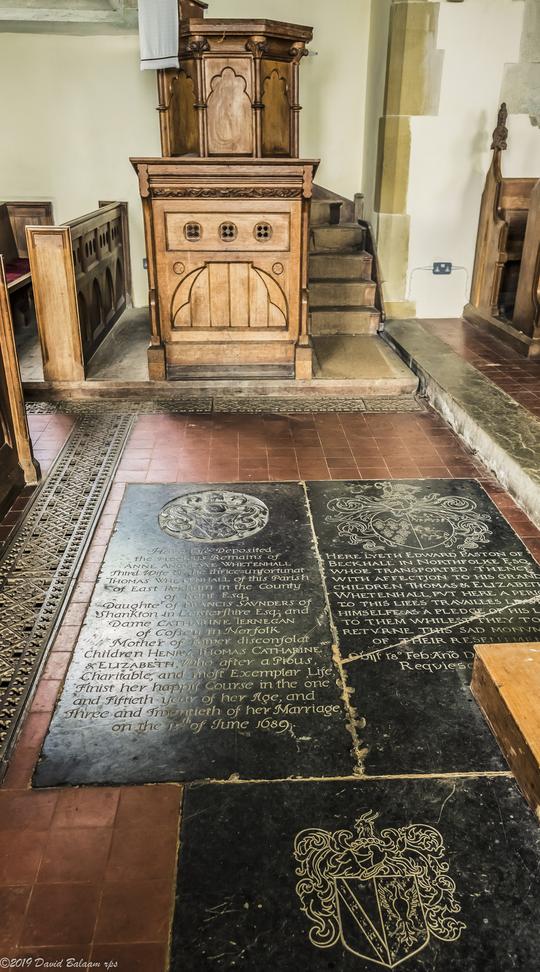 Here Lie Deposited
the Precious Remains of
ANNE WHETENHALL
Third Wife to the disconfortunat
THOMAS WHETENHALL of this Parish
of East Peckham in the County
of Esq.
Daughter of FRANCIS SAVNDERS of
Shankton in Esq. and
Dame CATHARINE IERNEGAN
of in Norfolk
Mother of disconsolat
Children HENRY, THOMAS CATHARINE,
& ELIZABETH, who after a Pious,
Charitable, and most Exempler Life,
Finist her happy Course in the one
and Fiftieth year of her Age, and
Three and Twentieth of her Marriage,
on the of Iune 1689.
HERE LYETH EDWARD PASTON OF
BECKHALL IN NORTHFOLKE ESQ.
WHOE TRANSPORTED THENC
WITH AFFECTION TO HIS GRAND
CHILDREN THOMAS & ELIZABE
WHETENHALL, PVT HERE A
TO THIS LIFES TRAVAILES
HIMSELFE AS A PLEDG OF
TO THEM WHILE THEY TO
RETVRNE THIS SAD MON
OF THEIR RESE
Obijt 18° Feb: Ano D
Requiesc
©2019 David Balaam rps